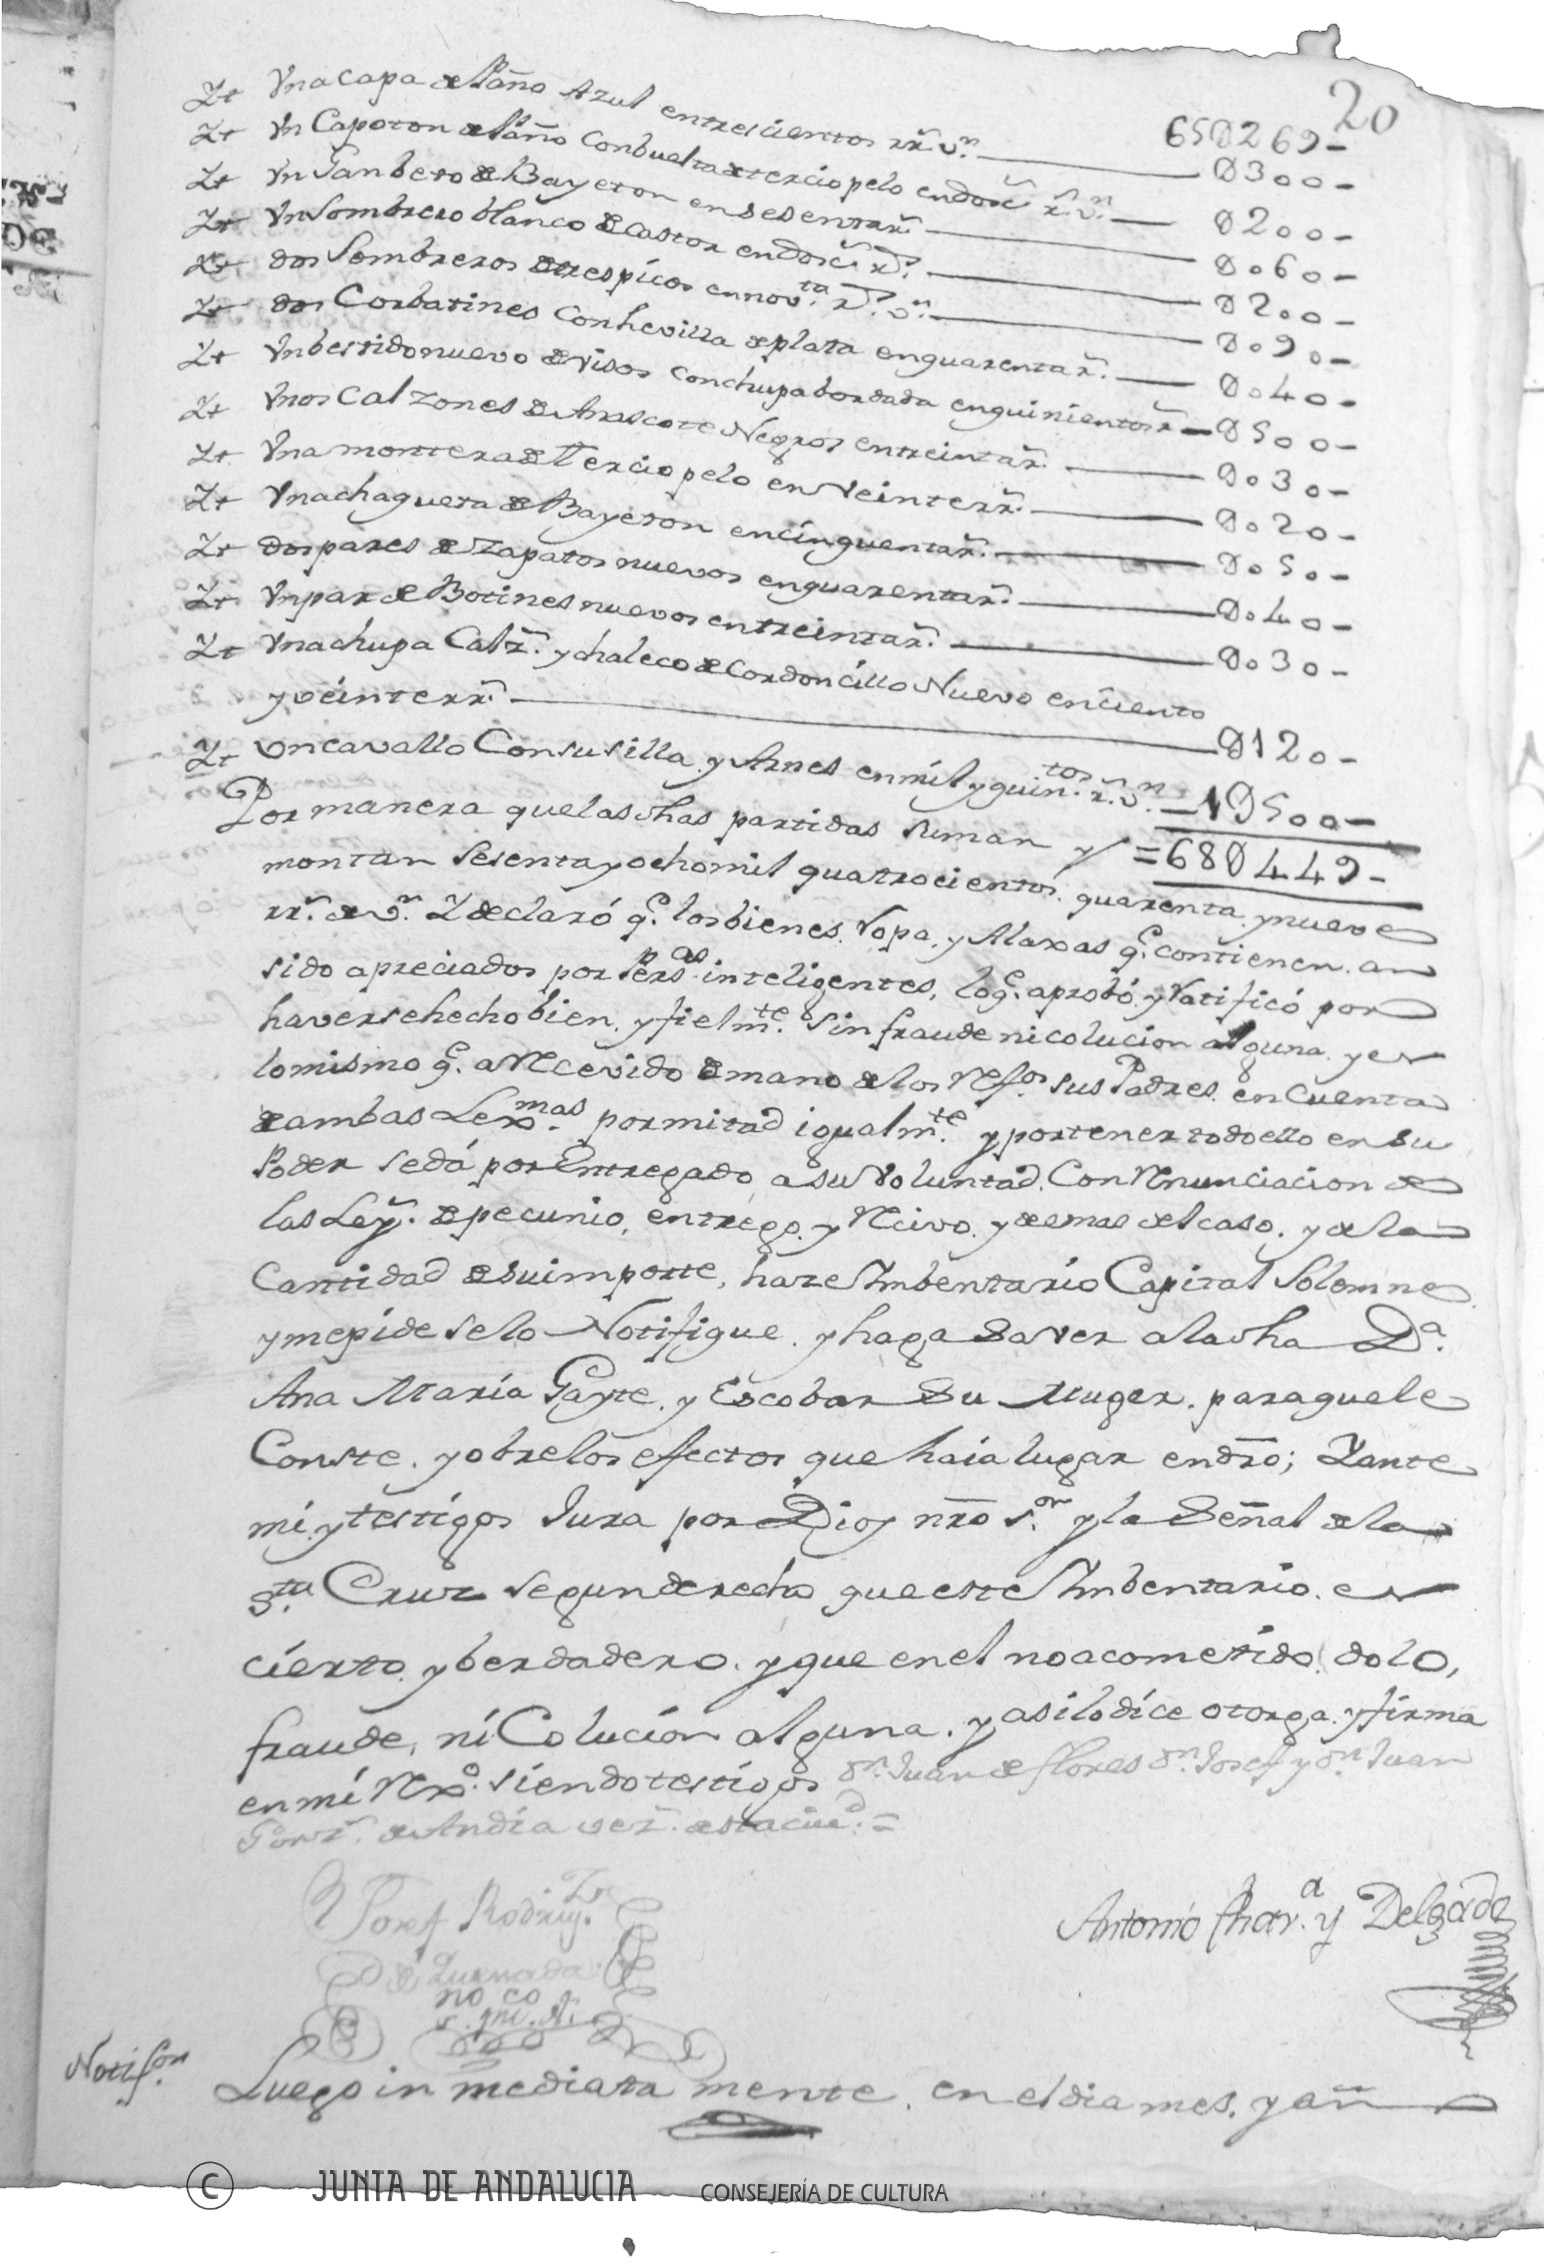 20
65Ø269-
Yt Vna capa de Paño Azul entrescientos rr.s v.n — Ø300-
Yt Vn Capoton de Paño conbuelta de terciopelo en dosc.s r.s v.n — Ø200-
Yt Vn Ganbeto de Bayeton en sesenta r.s — Ø060-
Yt Vn Sombrero blanco de castor en dosc.s r.s — Ø200-
Yt dos Sombreros de tres picos en nov.ta r.s v.n — Ø090-
Yt dos Corbatines con hevilla de plata en quarenta r.s — Ø040-
Yt Vn bestido nuevo de visos con chupa bordada en quinientos r.s — Ø500-
Yt Vnos Calzones de Anascote Negros en treinta r.s — Ø030-
Yt Vna montera de Terciopelo en Veinte rr.s — Ø020-
Yt Vna chagueta de Bayeton en cinquenta r.s — Ø050-
Yt dos pares de zapatos nuevos en quarenta r.s — Ø040-
Yt Vn par de Botines nuevos en treinta r.s — Ø030-
Yt Vna chupa Calz.s y chaleco de Cordoncillo Nuevo en ciento
y veinte rr.s — Ø120-
Yt Vn cavallo Con su silla y Arnes en mil y quin.tos r.s v.n — 1Ø500-
Por manera que las dhas partidas suman y =68Ø449-
montan sesenta y ocho mil quatrocientos quarenta y nueve
rr.s de v.n Y declaró q.e los bienes Ropa y Alaxas q.e contienen an
sido apreciados por Pers.as inteligentes, lo q.e aprobó y Ratificó por
haverse hecho bien y fielm.te sin fraude ni colucion alguna y es
lo mismo q.e a Recevido de mano de los Ref.os sus Padres en Cuenta
de ambas Lex.mas por mitad igualm.te y por tener todo ello en su
Poder se dá por Entregado a su Voluntad Con Renunciacion de
las Ley.s de pecunio, entrego y Recivo y demas del caso y de la
Cantidad de su importe, haze Ymbentario Capital Solemne
y me pide se lo Notifique y haga saver a la dha D.a
Ana Maria Gayte y Escobar su Muger para que le
Conste y obre los efectos que haia lugar en dro; Y ante
mi y testigos Jura por Dios nro S.or y la Señal de la
S.ta Cruz segun derecho que este Ymbentario es
cierto y berdadero y que en el no a cometido dolo,
fraude, ni Colución alguna y asi lo dice otorga y firma
en mi Rex.o siendo testigos d.n Juan de Flores d.n Josef y d.n Juan
Gonz.s de Andia vez.s de esta ciu.d =
Josef Rodrig.z
de Quesada
Antonio Char.a y Delgado
Notif.on Luego in mediata mente en el dia mes y año
© JUNTA DE ANDALUCIA CONSEJERÍA DE CULTURA